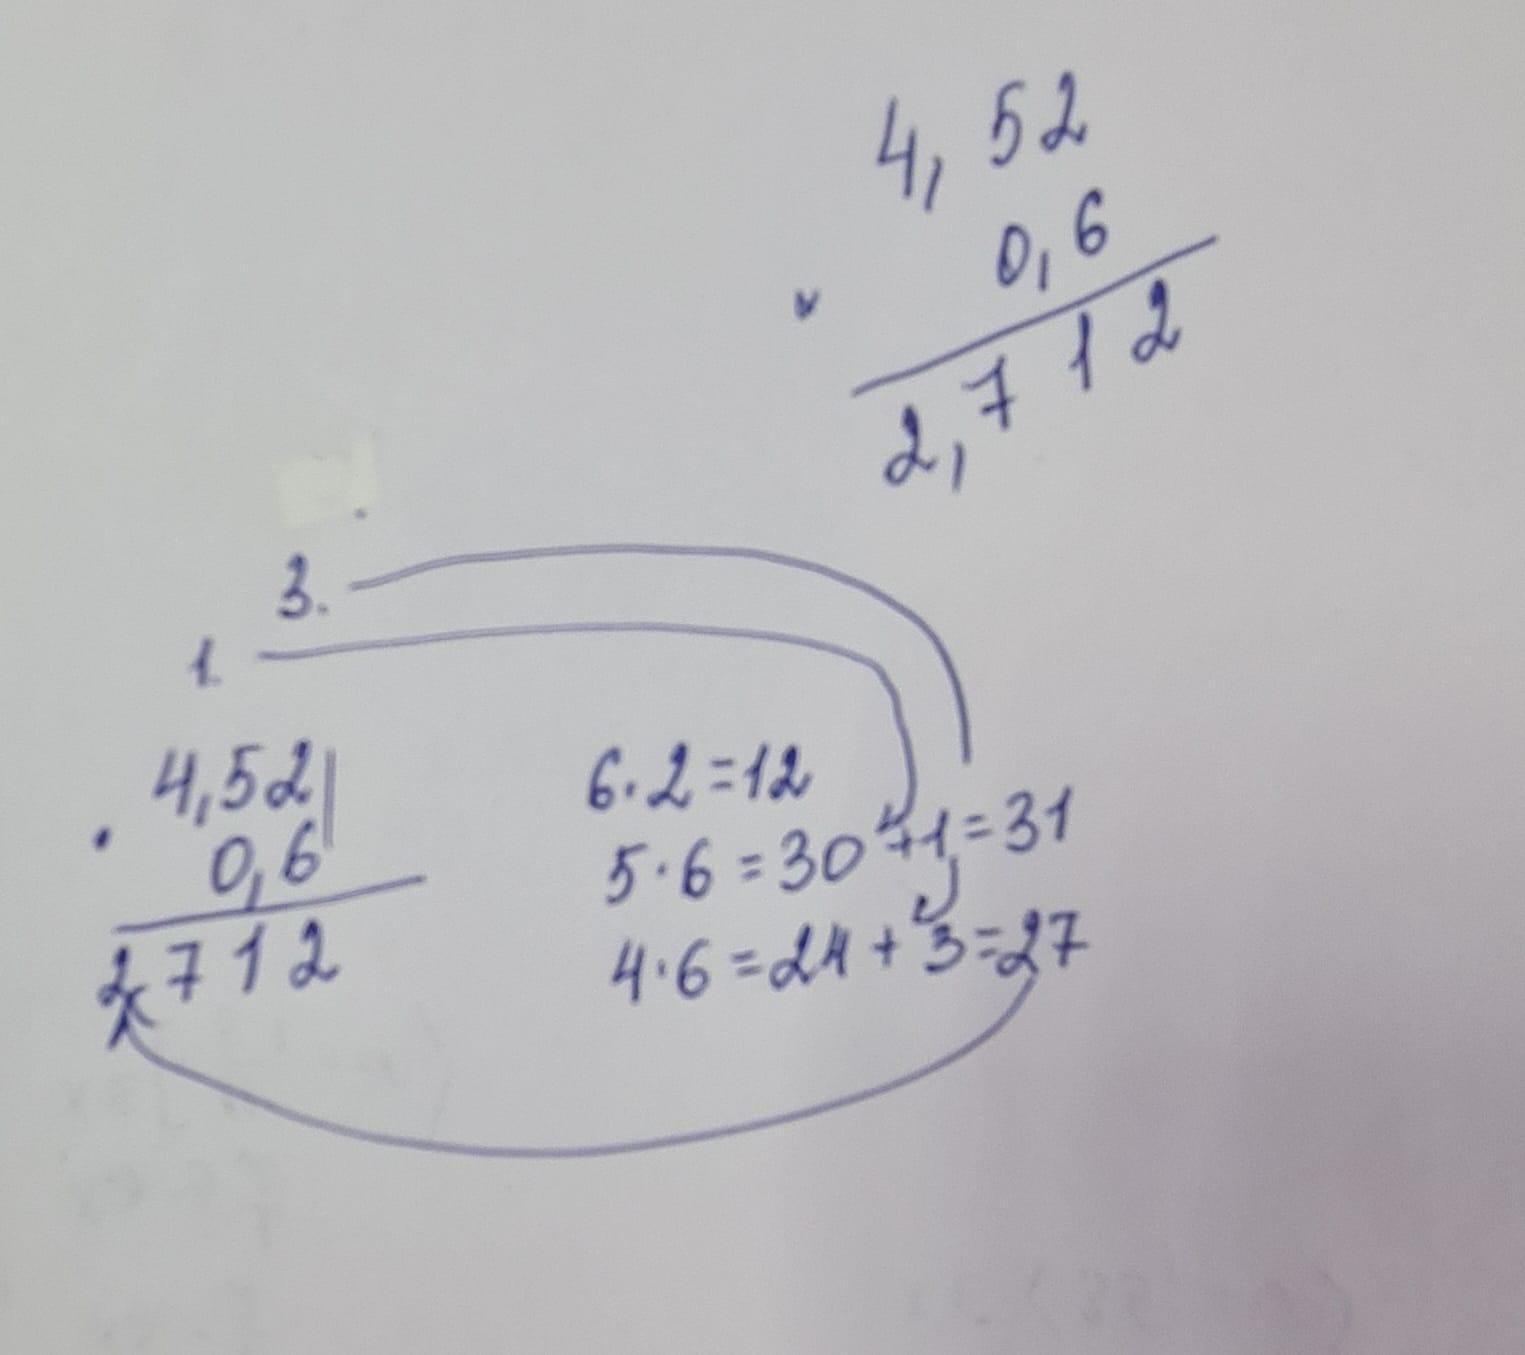 4,52
0,6
2,712
3.
1.
4,52|
· 0,6
2712
6·2=12
5·6=30+1=31
4·6=24+3=27